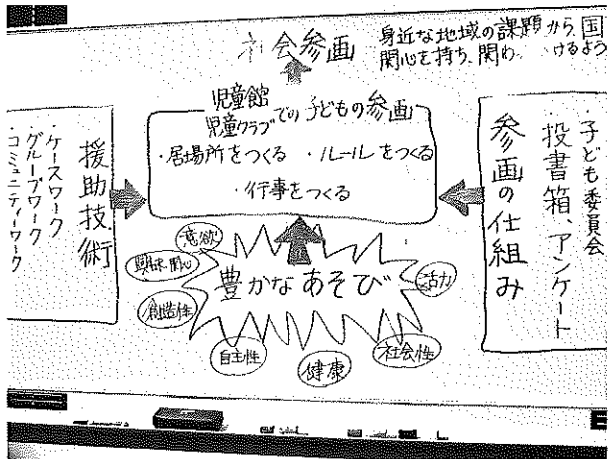 社会参画
身近な地域の課題から、国
関心を持ち、関わ けるよう
児童館
児童クラブでの子どもの参画
・居場所をつくる ・ルールをつくる
・行事をつくる
援助技術
・ケースワーク
・グループワーク
・コミュニティーワーク
参画の仕組み
・子ども委員会
投書箱、アンケート
豊かなあそび
意欲
興味・関心
創造性
自主性
健康
社会性
活力